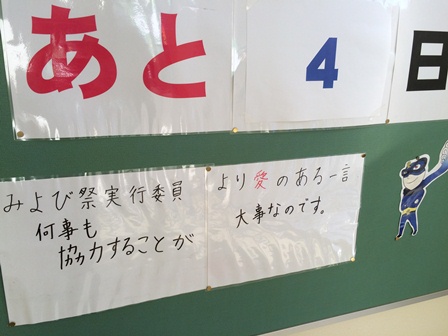 あと4日
みよび祭実行委員より愛のある一言
何事も
協力することが
大事なのです。